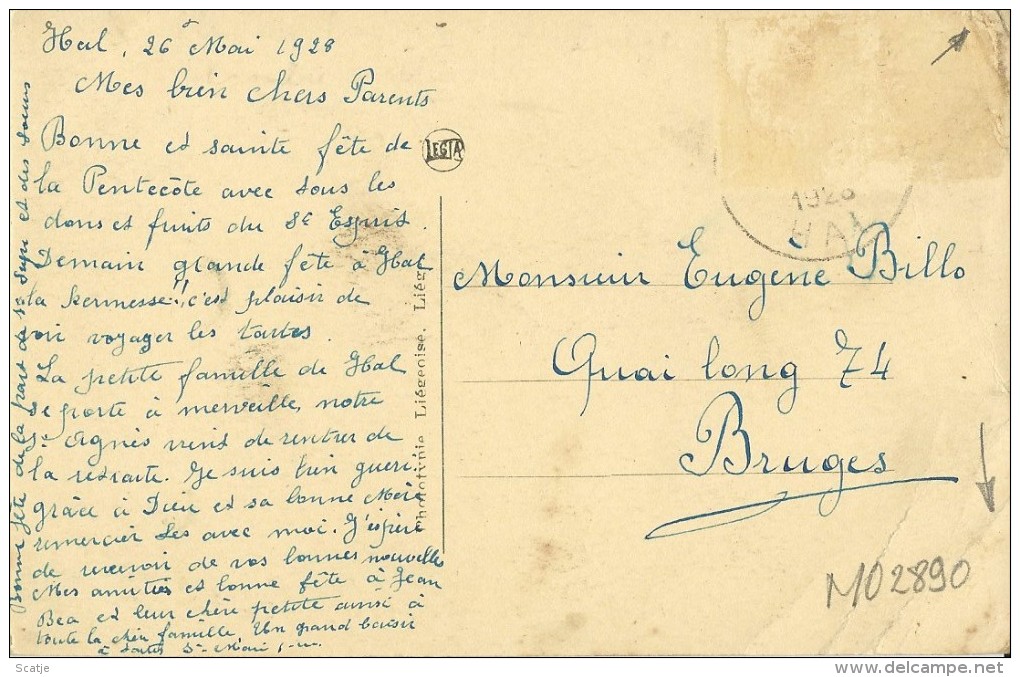 Hal, 26 Mai 1928
Mes bien chers Parents
Bonne et sainte fête de
la Pentecôte avec tous les
dons et fruits du St Esprit.
Demain grande fête à Hal
la kermesse!! c'est plaisir de
voir voyager les tartes.
La petite famille de Hal
se porte à merveille, notre
Sr Agnès vient de rentrer de
la retraite. Je suis bien guéri
grâce à Dieu et sa bonne Mère
remercier Les avec moi. J'espère
de recevoir de vos bonnes nouvelles
Mes amitiés et bonne fête à Jean
Bea et leur chère petite ainsi à
toute la chère famille. Un grand baiser
à toutes Sr Marie
Bonne fête de la part de Sr Supr et des soeurs
LEGIA
Phototypie Liégeoise. Liége
1928
HAL
Monsieur Eugène Billo
Quai long 74
Bruges
M02890
Scatje
www.delcampe.net